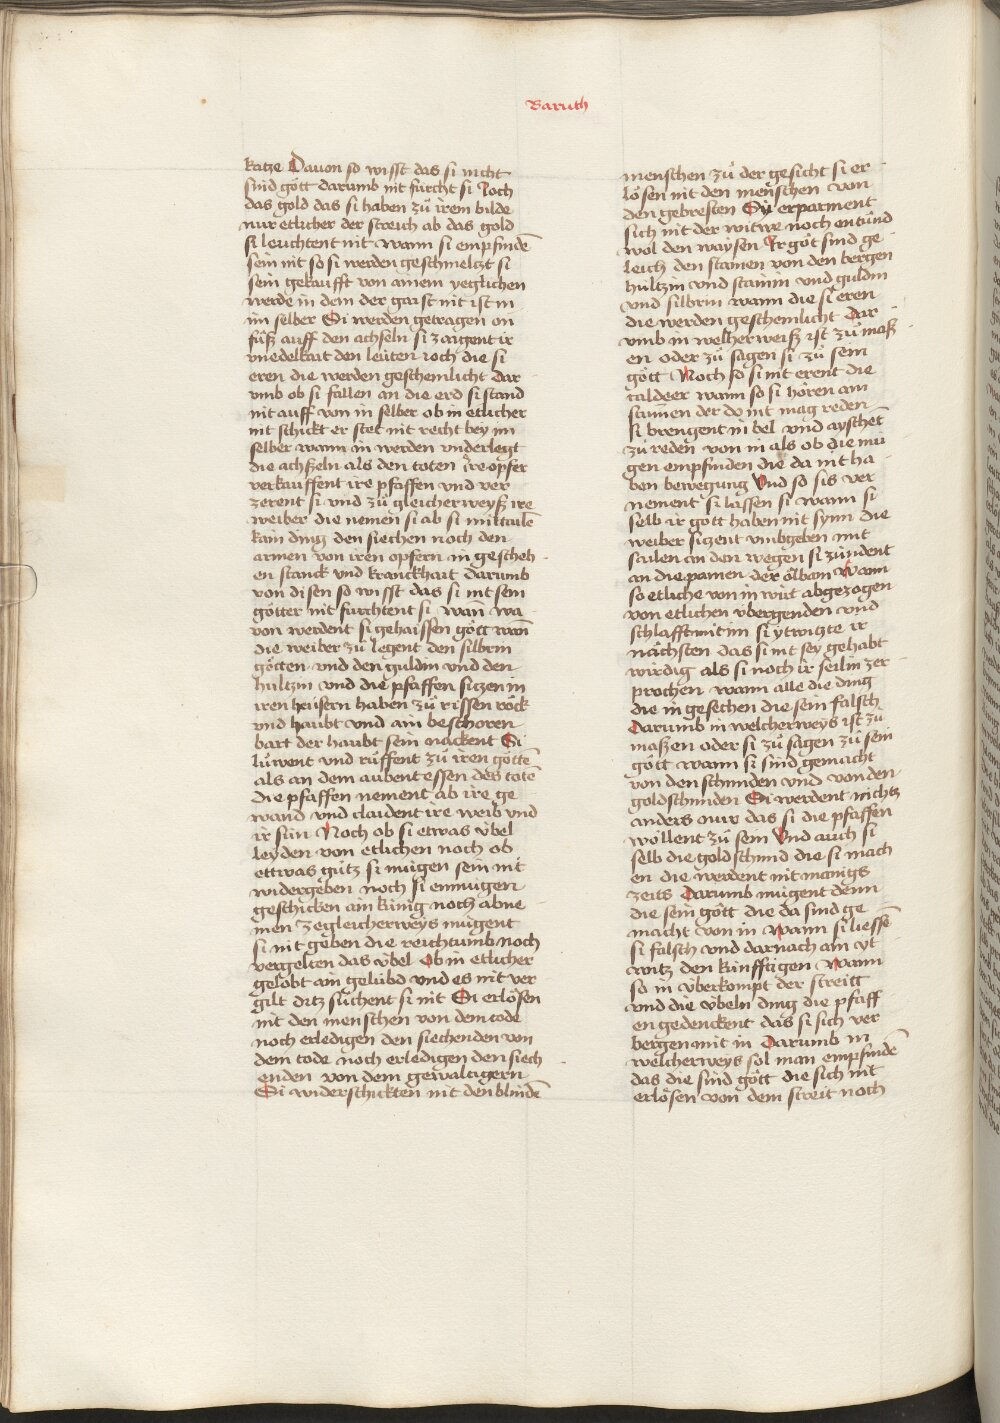 Baruch
katze Dauon so wisst das si nicht
sind gött darumb nit fürcht si Joch
das gold das si haben zů irem bilde
nur etlicher der streich ab das gold
si leuchtent nit wann si empfindē
sein nit so si werden geschmeltzt si
sein gekaufft von ainem yeglichen
werde in dem der gaist nit ist in
im selber Si werden getragen on
fůß auff den achseln si zaigent ir
vnedelkait den leüten joch die si
eren die werden geschemlicht Dar
vmb ob si fallen an die erd si stand
nit auff von in selber ob in etlicher
nit schickt er stet nit recht bey im
selber wann in werden vnderlegt
die achßeln als den toten ire opfer
verkauffent ire pfaffen vnd ver
zerent si vnd zů gleicherweyß ire
weiber die nemen si ab si mittailē
kain ding den siechen noch den
armen von iren opfern in gescheh
en stanck vnd kranckhait darumb
von disen so wisst das si nit sein
götter nit furchtent si wañ wa
von werdent si gehaissen gött wañ
die weiber zů legent den silbrin
götten vnd den guldin vnd den
hültzin vnd die pfaffen sitzen in
iren heusern haben zů rissen röck
vnd haubt vnd ain beschoren
bart der haubt sein nackent Si
lüwent vnd rüffent zů iren göttē
als an dem aubent essen des totē
die pfaffen nement ab ire ge
wand vnd claident ire weib vnd
ir sün Noch ob si etwas v̈bel
leyden von etlichen noch ob
ettwas gütz si mügen sein nit
widergeben noch si enmügen
geschicken ain künig noch abne
men zegleicherweys mügent
si nit geben die reichtumb noch
vergelten das v̈bel Ob in etlicher
gelobt ain gelübd vnd es nit ver
gilt ditz sůchent si nit Si erlösen
nit den menschen von dem tode
noch erledigen den siechenden von
dem tode noch erledigen den siech
enden von dem gewaltigern
Si widerschickten nit den blindē
menschen zů der gesicht si er
lösen nit den menschen von
den gebresten Sy erparment
sich nit der witwe noch entůnd
wol den waysen Ir gött sind ge
leich den stainen von den bergen
hültzin vnd stainin vnd guldin
vnd silbrin wann die si eren
die werden geschemlicht Dar
vmb in welher weiß ist zů maß
en oder zů sagen si zů sein
gött Noch so si nit erent die
caldeer wann so si hören ain
stumen der do nit mag reden
si brengent in bel vnd ayschēt
zů reden von in als ob die mü
gen empfinden die da nit ha
ben bewegung Vnd so sis ver
nement si lassen si wann si
selb ir gött haben nit synn die
weiber sitzent vmbgeben mit
sailen an den wegen si zündent
an die pamen der ölbam Wann
so etliche von in wirt abgezogen
von etlichen v̈bergenden vnd
schlafft mit im si ytwitzte ir
nächsten das si nit sey gehabt
wirdig als si noch ir seil in zer
prochen wann alle die ding
die in geschehen die sein falsch
Darumb in welcherweys ist zů
maßen oder si zů sagen zů sein
gött wann si sind gemacht
von den schmiden vnd von den
goldschmiden Si werdent nichtz
anders nur das si die pfaffen
wöllent zů sein Vnd auch si
selb die goldschmid die si mach
en die werdent nit manigs
zeits Darumb mügent denn
die sein gött die da sind ge
macht von in Wann si liessē
si falsch vnd darnach ain yt
witz den künfftigen Wann
so in v̈berkompt der streitt
vnd die v̈beln ding die pfaff
en gedenckent das si sich ver
bergen mit in Darumb in
welcherweys sol man empfindē
das die sind gött die sich nit
erlösen von dem streit noch